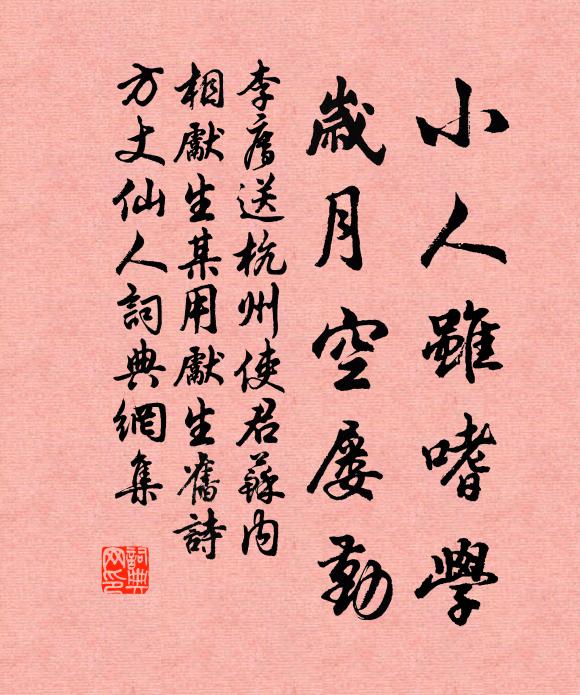 小人雖嗜學
歲月空屡勤
李廌送杭州使君蘇内
相獻生某用獻生舊詩
方丈仙人詞典網集
詞典网印